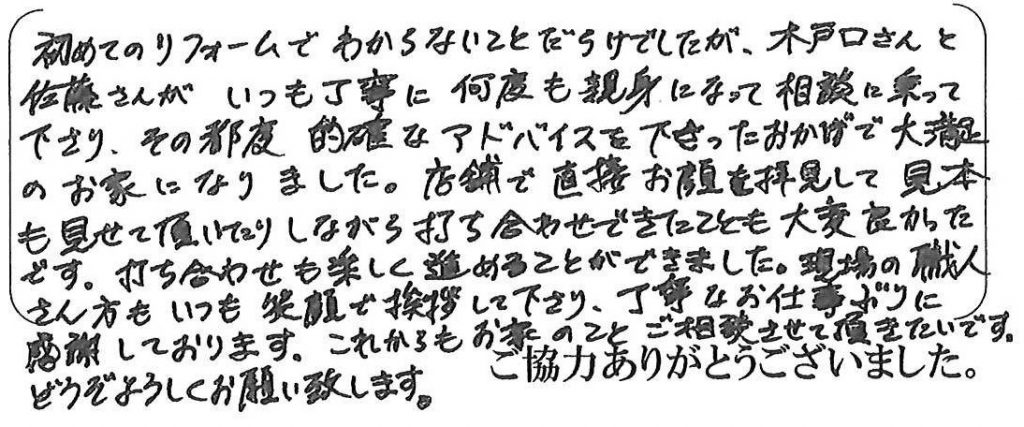 初めてのリフォームでわからないことだらけでしたが、木戸口さんと
佐藤さんが いつも丁寧に 何度も親身になって相談に乗って
下さり、その都度 的確なアドバイスを下さったおかげで大満足
のお家になりました。店舗で直接お顔を拝見して見本
も見せて頂いたりしながら打ち合わせできたことも大変良かった
です。打ち合わせも楽しく進めることができました。現場の職人
さん方もいつも笑顔で挨拶して下さり、丁寧なお仕事ぶりに
感謝しております。これからもお家のことご相談させて頂きたいです。
どうぞよろしくお願い致します。
ご協力ありがとうございました。